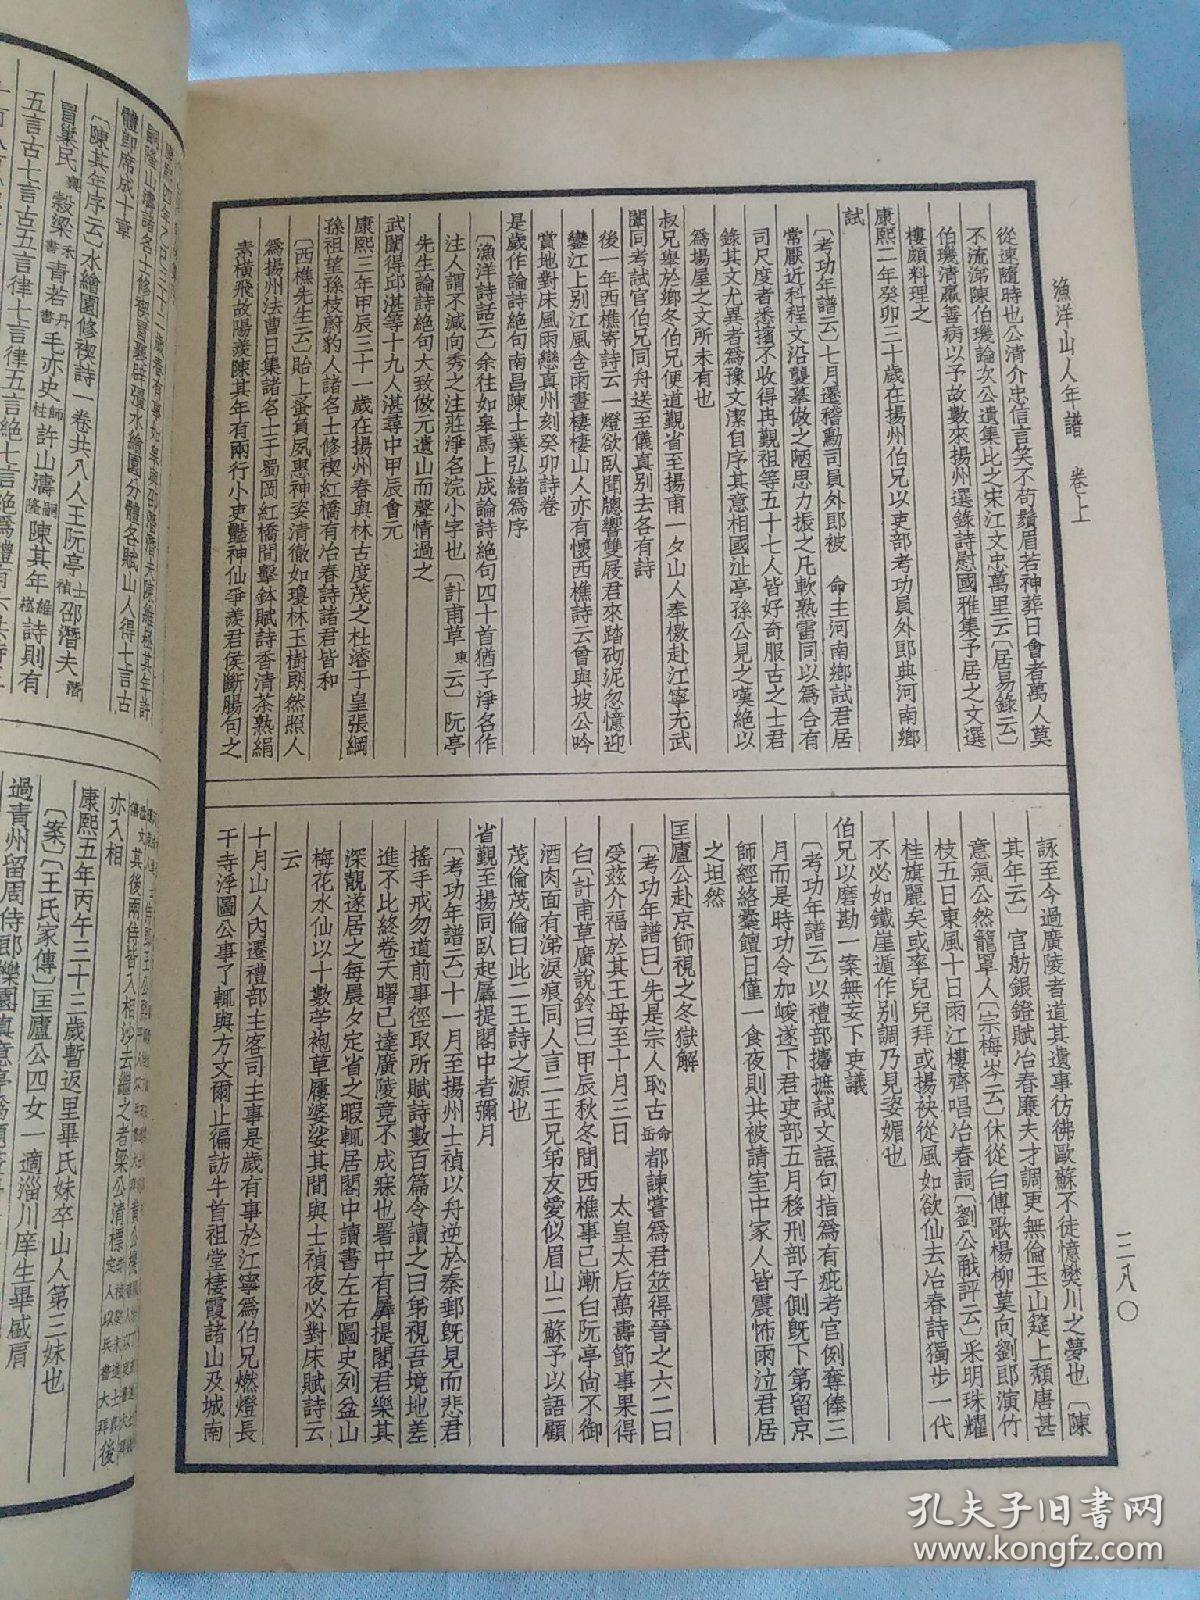 漁洋山人年譜 卷上
三八〇
從速隨時也公清介忠信言笑不苟鬚眉若神葬日會者萬人莫
不流涕陳伯璣論次公遺集比之宋江文忠萬里云〔居易錄云〕
伯璣清羸善病以予故數來揚州選錄詩慰國雅集予居之文選
樓頗料理之
康熙二年癸卯三十歲在揚州伯兄以吏部考功員外郎典河南鄉
試
〔考功年譜云〕七月遷稽勳司員外郎被 命主河南鄉試君居
常厭近科程文沿襲摹倣之陋思力振之凡軟熟雷同以爲合有
司尺度者悉擯不收得冉覲祖等五十七人皆好奇服古之士君
錄其文尤異者爲豫文潔自序其意相國沚亭孫公見之嘆絕以
爲場屋之文所未有也
叔兄舉於鄉冬伯兄便道覲省至揚甫一夕山人奉檄赴江寧充武
闈同考試官伯兄同舟送至儀真別去各有詩
後一年西樵寄詩云一燈欲臥聞驄響雙屐君來踏砌泥忽憶迎
鑾江上別江風含雨晝棲棲山人亦有懷西樵詩云曾與坡公吟
賞地對床風雨戀真州刻癸卯詩卷
是歲作論詩絕句南昌陳士業弘緒爲序
〔漁洋詩話云〕余往如皋馬上成論詩絕句四十首猶子淨名作
注人謂不減向秀之注莊淨名浣小字也〔計甫草東云〕阮亭
先生論詩絕句大致倣元遺山而聲情過之
武闈得邱湛等十九人湛尋中甲辰會元
康熙三年甲辰三十一歲在揚州春與林古度茂之杜濬于皇張綱
孫祖望孫枝蔚豹人諸名士修禊紅橋有冶春詩諸君皆和
〔西樵先生云〕貽上蚤負夙惠神姿清徹如瓊林玉樹朗然照人
爲揚州法曹日集諸名士于蜀岡紅橋間擊鉢賦詩香清茶熟絹
素橫飛故陽羨陳其年有兩行小吏豔神仙爭羨君侯斷腸句之
詠至今過廣陵者道其遺事彷彿歐蘇不徒憶樊川之夢也〔陳
其年云〕官舫銀鐙賦冶春廉夫才調更無倫玉山筵上頹唐甚
意氣公然籠罩人〔宗梅岑云〕休從白傅歌楊柳莫向劉郎演竹
枝五日東風十日雨江樓齊唱冶春詞〔劉公㦷評云〕采明珠耀
桂旗麗矣或率兒兒拜或揚袂從風如欲仙去冶春詩獨步一代
不必如鐵崖遁作別調乃見姿媚也
伯兄以磨勘一案無妄下吏議
〔考功年譜云〕以禮部攟摭試文語句指爲有疵考官例奪俸三
月而是時功令加峻遂下君吏部五月移刑部子側既下第留京
師經絡橐饘日僅一食夜則共被請室中家人皆震怖雨泣君居
之坦然
匡廬公赴京師視之冬獄解
〔考功年譜曰〕先是宗人恥古俞岳都諫嘗爲君筮得晉之六二曰
受茲介福於其王母至十月三日 太皇太后萬壽節事果得
白〔計甫草廣說鈴曰〕甲辰秋冬間西樵事已漸白阮亭尙不御
酒肉面有涕淚痕同人言二王兄弟友愛似眉山二蘇予以語顧
茂倫茂倫曰此二王詩之源也
省覲至揚同臥起羼提閣中者彌月
〔考功年譜云〕十一月至揚州士禎以舟逆於秦郵既見而悲君
搖手戒勿道前事徑取所賦詩數百篇令讀之曰弟視吾境地差
進不比終卷天曙已達廣陵竟不成寐也署中有羼提閣君樂其
深靚遂居之每晨夕定省之暇輒居閣中讀書左右圖史列盆山
梅花水仙以十數芓袍草屨婆娑其間與士禎夜必對床賦詩云
云
十月山人內遷禮部主客司主事是歲有事於江寧爲伯兄燃燈長
干寺浮圖公事了輒與方文爾止徧訪牛首祖堂棲霞諸山及城南
體卽席成十章
〔陳其年序云〕水繪園修禊詩一卷共八人王阮亭士禎邵潛夫潛
冒巢民襄穀梁禾書青若丹書毛亦史師柱許山濤嗣隆陳其年維崧詩則有
五言古七言古五言律七言律五言絕七言絕爲體有六
亦入相
康熙五年丙午三十三歲暫返里畢氏妹卒山人第三妹也
〔案〕〔王氏家傳〕匡廬公四女一適淄川庠生畢盛肩
過青州留周侍郎櫟園真意亭
孔夫子旧书网
www.kongfz.com